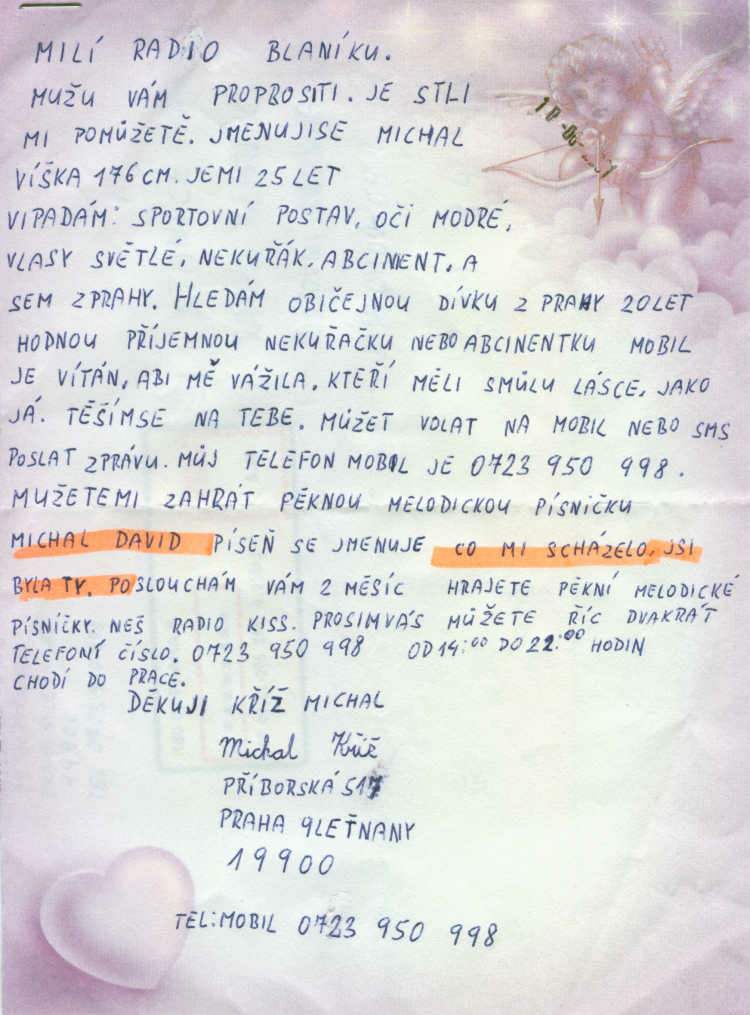 MILÍ RADIO BLANÍKU.
MUŽU VÁM PROPROSITI. JE STLI
MI POMŮŽETĚ. JMENUJISE MICHAL
VÍŠKA 176 CM. JEMI 25 LET
VIPADÁM: SPORTOVNÍ POSTAV, OČI MODRÉ,
VLASY SVĚTLÉ, NEKUŘÁK. ABCINENT, A
SEM Z PRAHY. HLEDÁM OBIČEJNOU DÍVKU Z PRAHY 20 LET
HODNOU PŘÍJEMNOU NEKUŘAČKU NEBO ABCINENTKU MOBIL
JE VÍTÁN, ABI MĚ VÁŽILA, KTEŘÍ MĚLI SMŮLU LÁSCE, JAKO
JÁ. TĚŠÍMSE NA TEBE. MŮŽET VOLAT NA MOBIL NEBO SMS
POSLAT ZPRÁVU. MŮJ TELEFON MOBIL JE 0723 950 998.
MUŽETEMI ZAHRÁT PĚKNOU MELODICKOU PÍSNIČKU
MICHAL DAVID PÍSEŇ SE JMENUJE CO MI SCHÁZELO, JSI
BYLA TY. POSLOUCHÁM VÁM 2 MĚSÍC HRAJETE PĚKNÍ MELODICKÉ
PÍSNIČKY. NEŠ RADIO KISS. PROSIMVÁS MŮŽETE ŘÍC DVAKRÁT
TELEFONÍ ČÍSLO. 0723 950 998 OD 14:00 DO 22:00 HODIN
CHODÍ DO PRACE.
DĚKUJI KŘÍŽ MICHAL
Michal Kříž
PŘÍBORSKÁ 517
PRAHA 9 LETŇANY
19900
TEL:MOBIL 0723 950 998